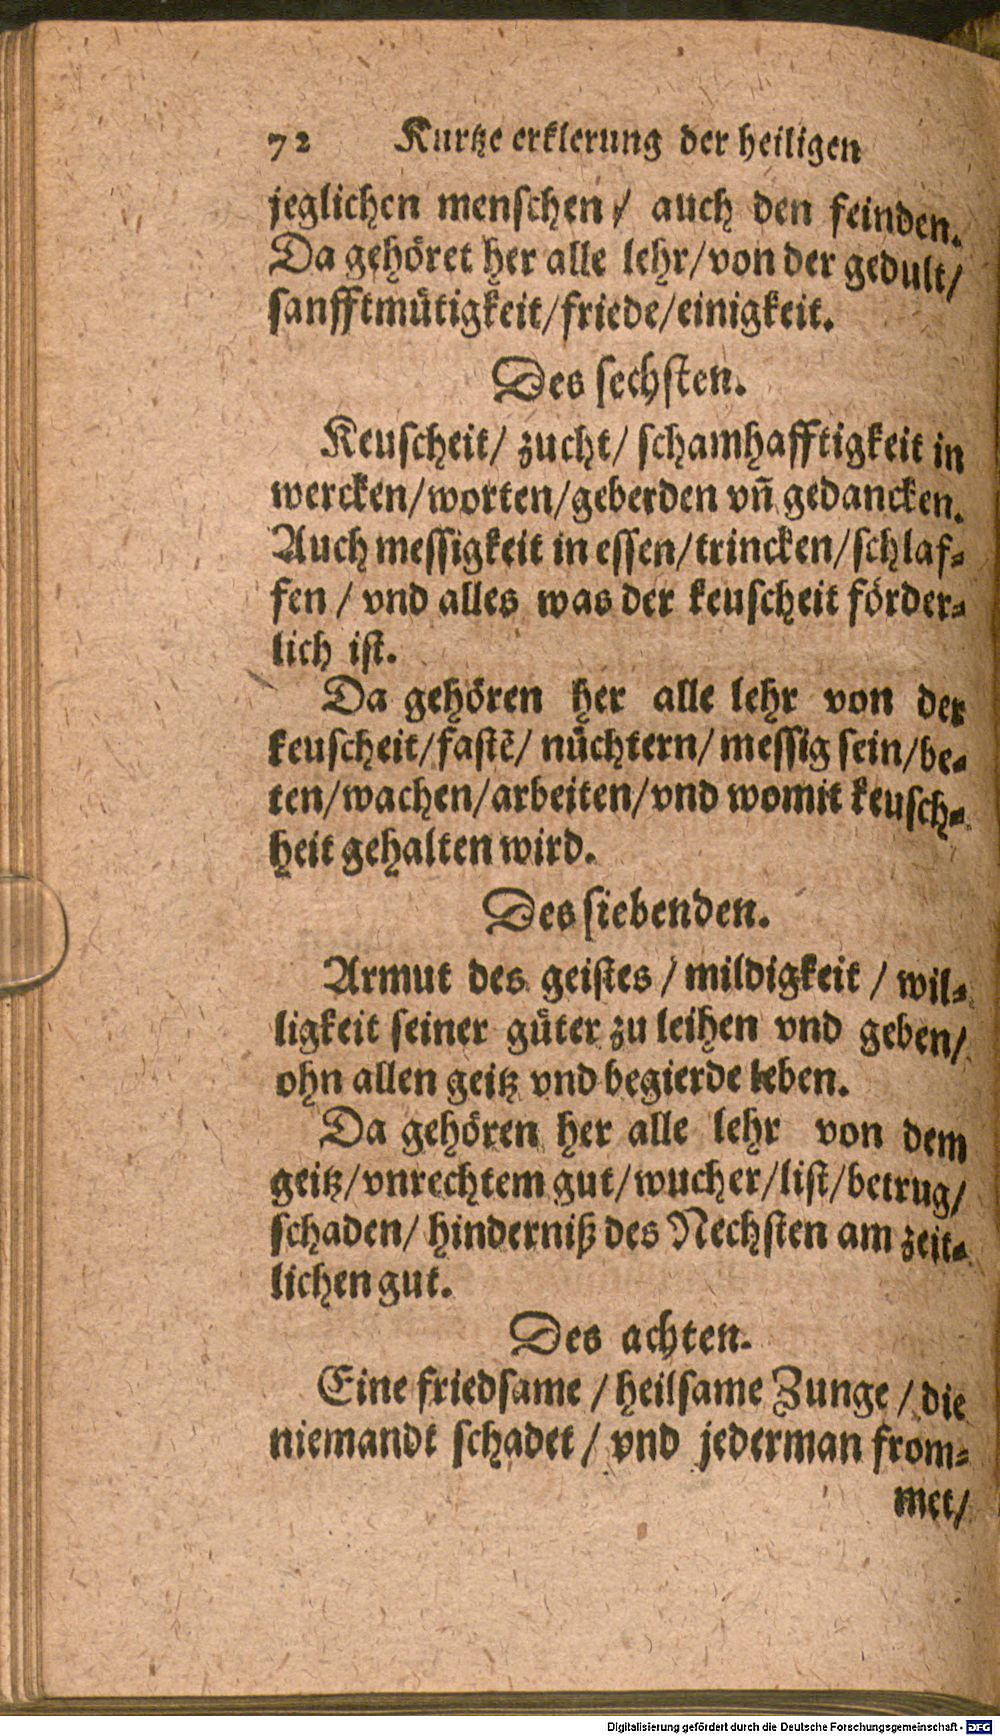 72 Kurtze erklerung der heiligen
jeglichen menschen / auch den feinden.
Da gehöret her alle lehr/von der gedult/
sanfftmütigkeit/friede/einigkeit.
Des sechsten.
Keuscheit/ zucht/ schamhafftigkeit in
wercken/worten/geberden vñ gedancken.
Auch messigkeit in essen/trincken/schlaf-
fen / vnd alles was der keuscheit förder-
lich ist.
Da gehören her alle lehr von der
keuscheit/fastē/ nüchtern/messig sein/be-
ten/wachen/arbeiten/vnd womit keusch-
heit gehalten wird.
Des siebenden.
Armut des geistes / mildigkeit / wil-
ligkeit seiner güter zu leihen vnd geben/
ohn allen geitz vnd begierde leben.
Da gehören her alle lehr von dem
geitz/vnrechtem gut/wucher/list/betrug/
schaden/ hinderniß des Nechsten am zeit-
lichen gut.
Des achten.
Eine friedsame / heilsame Zunge / die
niemandt schadet / vnd jederman from-
met/
Digitalisierung gefördert durch die Deutsche Forschungsgemeinschaft - DFG